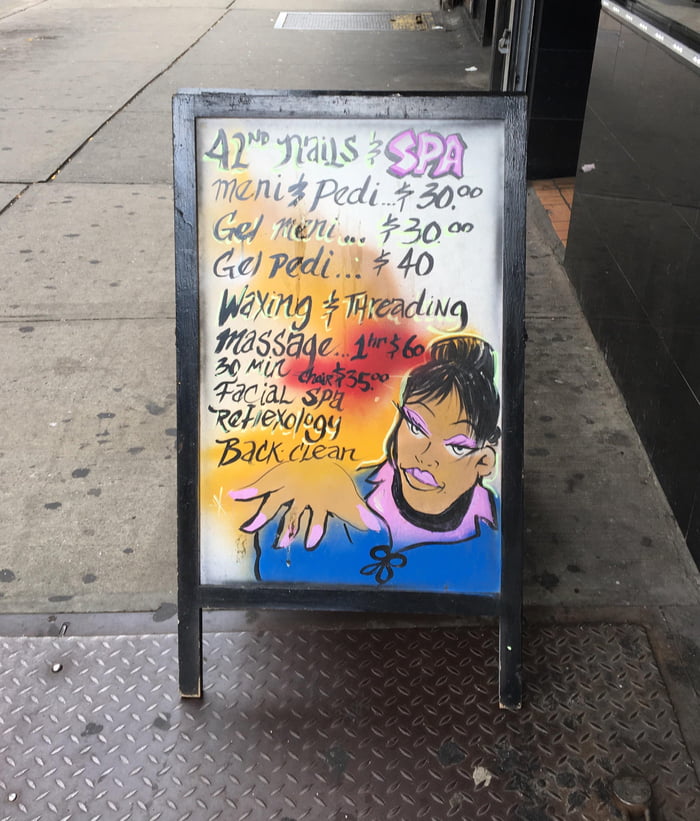 42ND Nails & SPA
Meni & Pedi...$30.00
Gel Meni... $30.00
Gel Pedi... $40
Waxing & Threading
Massage...1hr $60
30 Min chair $35.00
Facial Spa
Reflexology
Back Clean